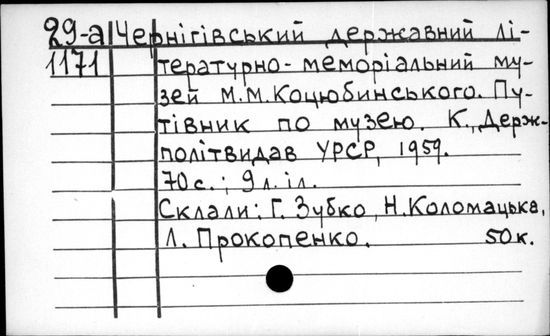 29-а Чернігівський державний лі-
1171 тературно-меморіальний му-
зей М.М.Коцюбинського. Пу-
тівник по музею. К., Держ-
політвидав УРСР, 1959.
70с.; 9л.іл.
Склали: Г. Зубко, Н.Коломацька,
Л. Прокопенко. 50к.